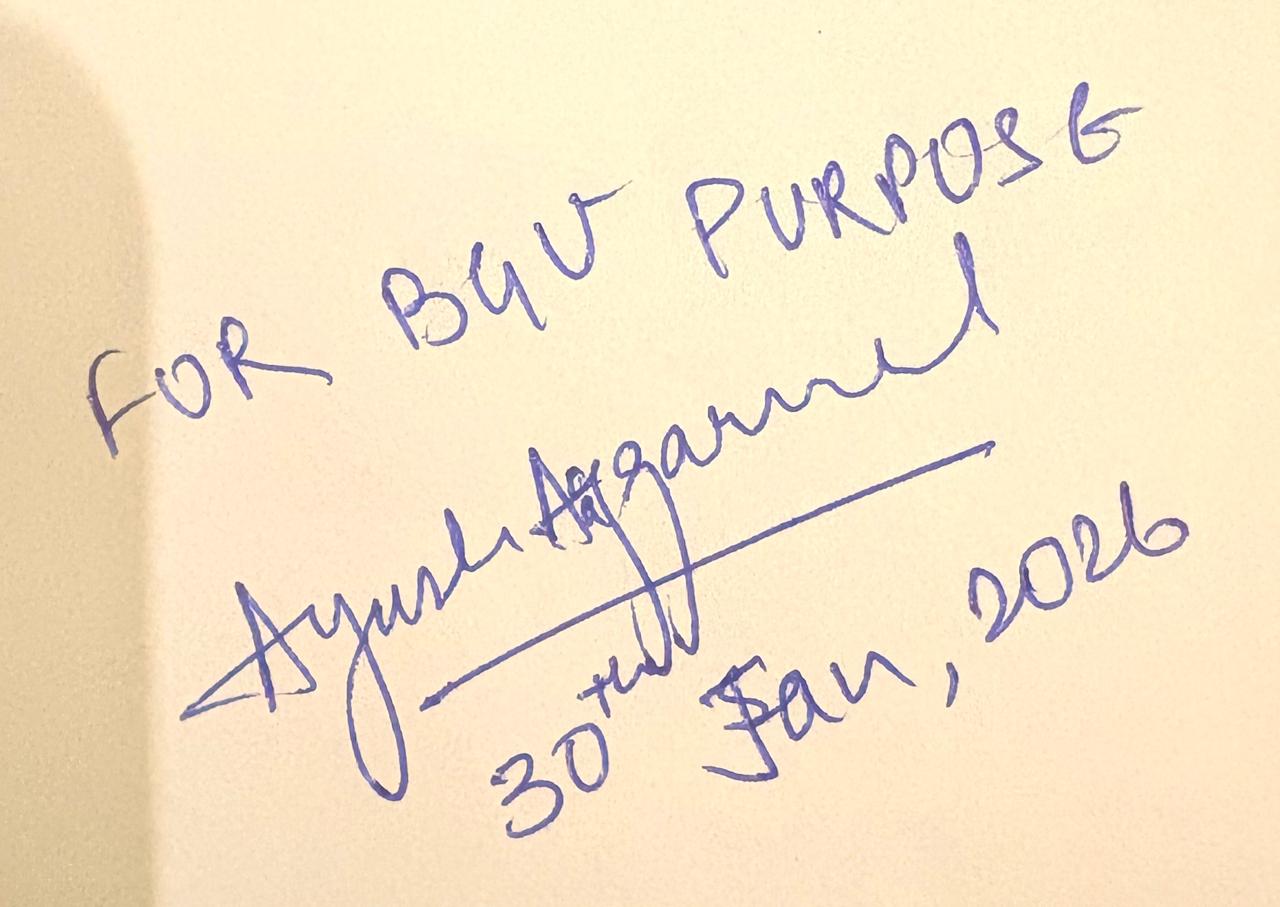 FOR BGV PURPOSE
Ayush Aggarwal
30th Jan, 2026